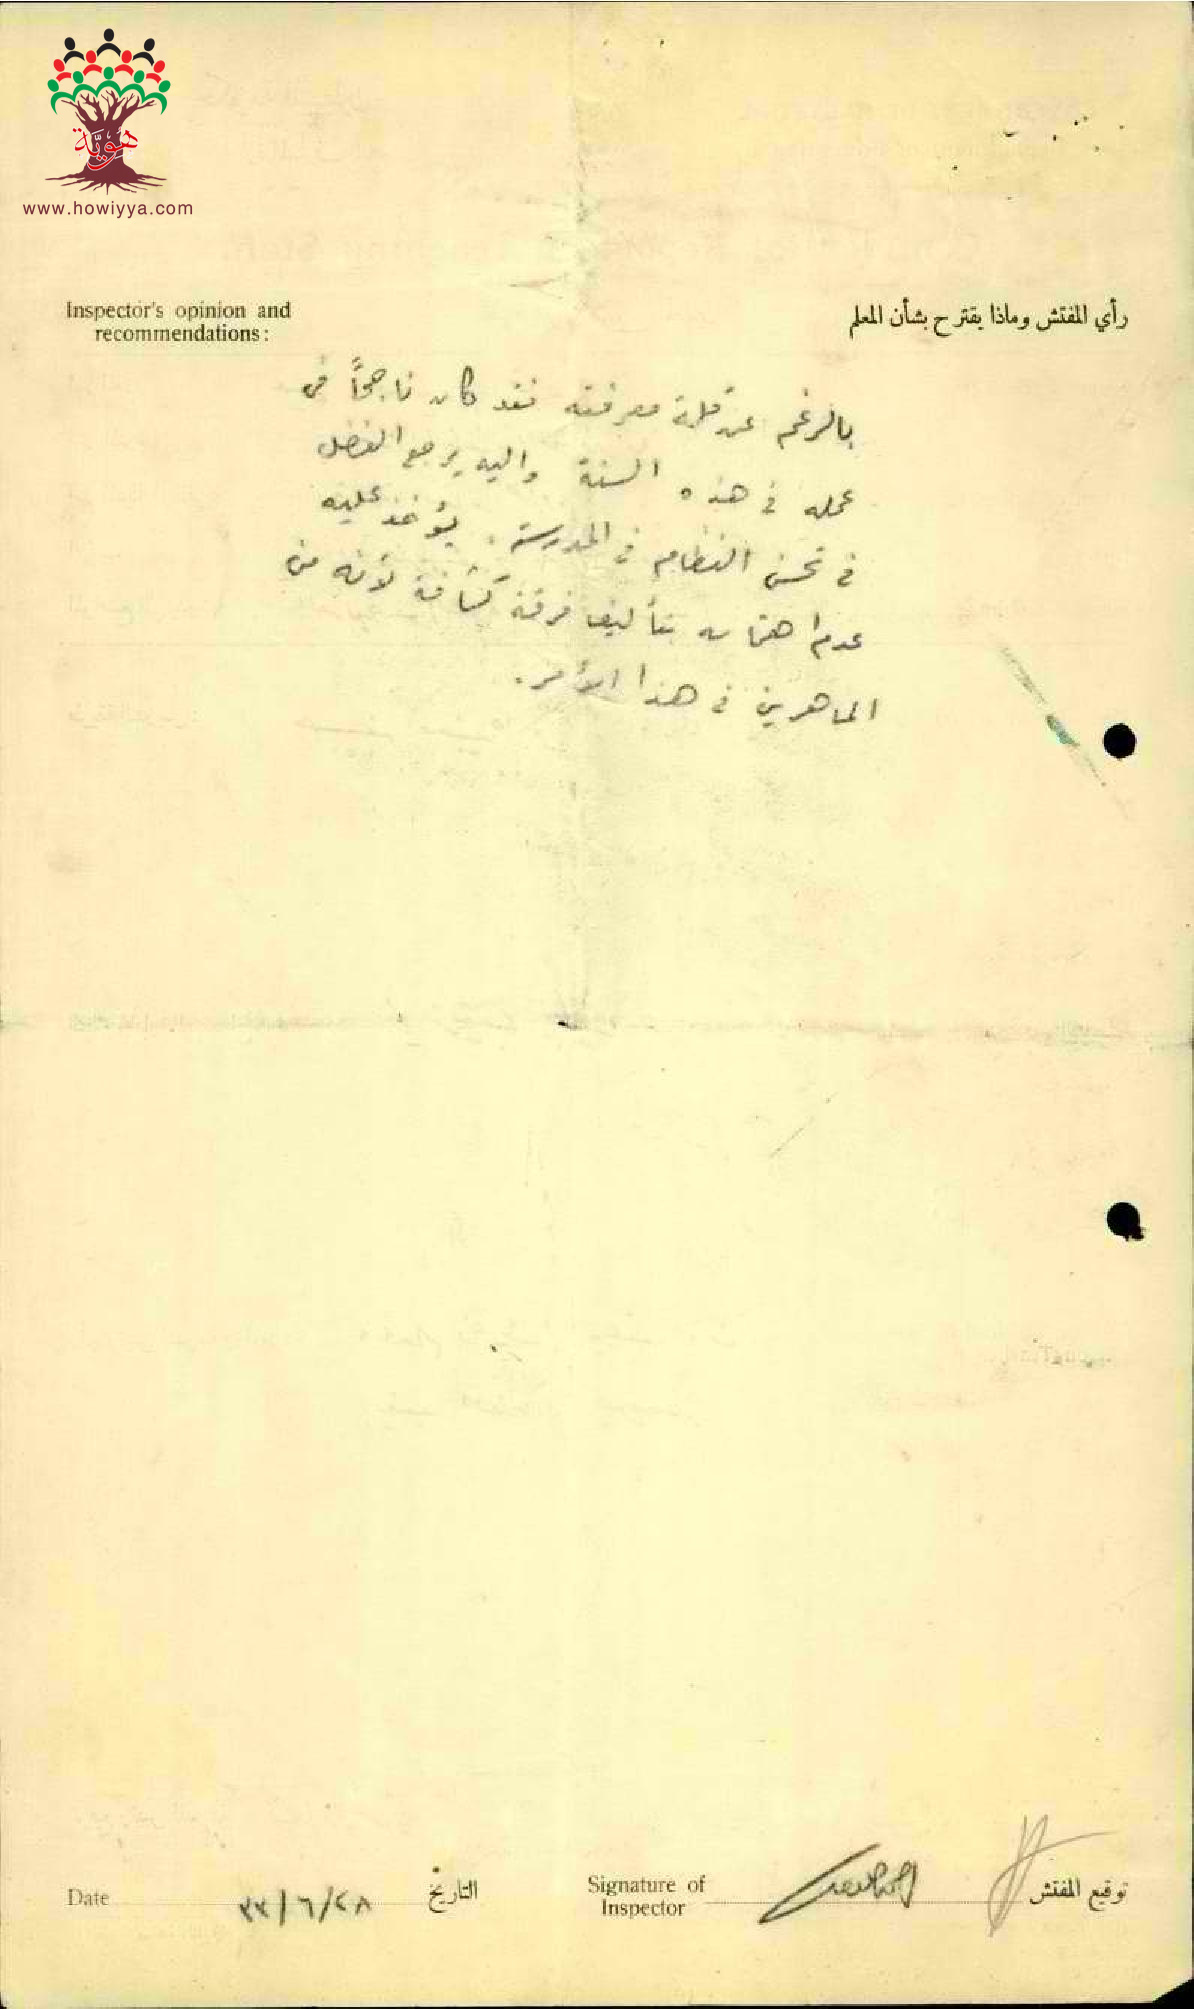 هوية
www.howiyya.com
Inspector's opinion and
recommendations:
رأي المفتش وماذا يقترح بشأن المعلم
بالرغم عن قلة معرفته فقد كان ناجحاً في
عمله في هذه السنة واليه يرجع الفضل
في تحسن النظام في المدرسة. يؤخذ عليه
عدم اهتمامه بتأليف فرقة كشافة لأنه من
الماهرين في هذا الأمر.
Date
٣٣/٦/٢٨
التاريخ
Signature of
Inspector
توقيع المفتش